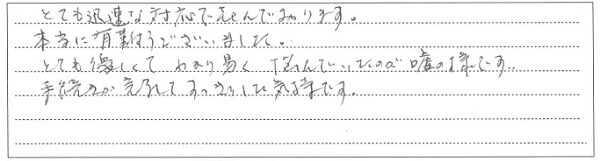 とても迅速な対応で喜んでおります。
本当に有難うございました。
とても優しくて わかり易く 悩んでいたのが 嘘の様です。
手続きが完了してすっきりした気持です。